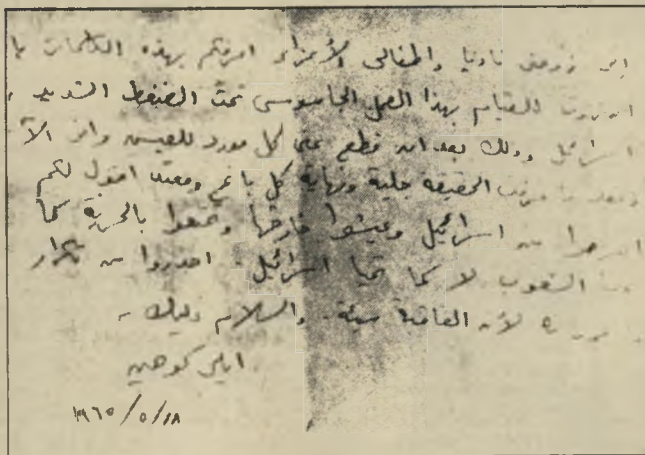 الى زوجتي ناديا واطفالي الأعزاء اعرفكم بهذه الكلمات
للقيام بهذا العمل الجاسوسي تحت الضغط الشديد
اسرائيل وذلك بعد ان قطع علي كل مورد للعيش وانى الآ
الحقيقة جلية ونهاية كل باغي ومعتد اقول لكم
من اسرائيل وعيشوا خارجها وتمتعوا بالحرية كما
الشعوب لا كما تحيا اسرائيل. احذروا من تكرار
لأن العاقبة سيئة. والسلام
ايلي كوهين
١٩٦٥/٥/١٨